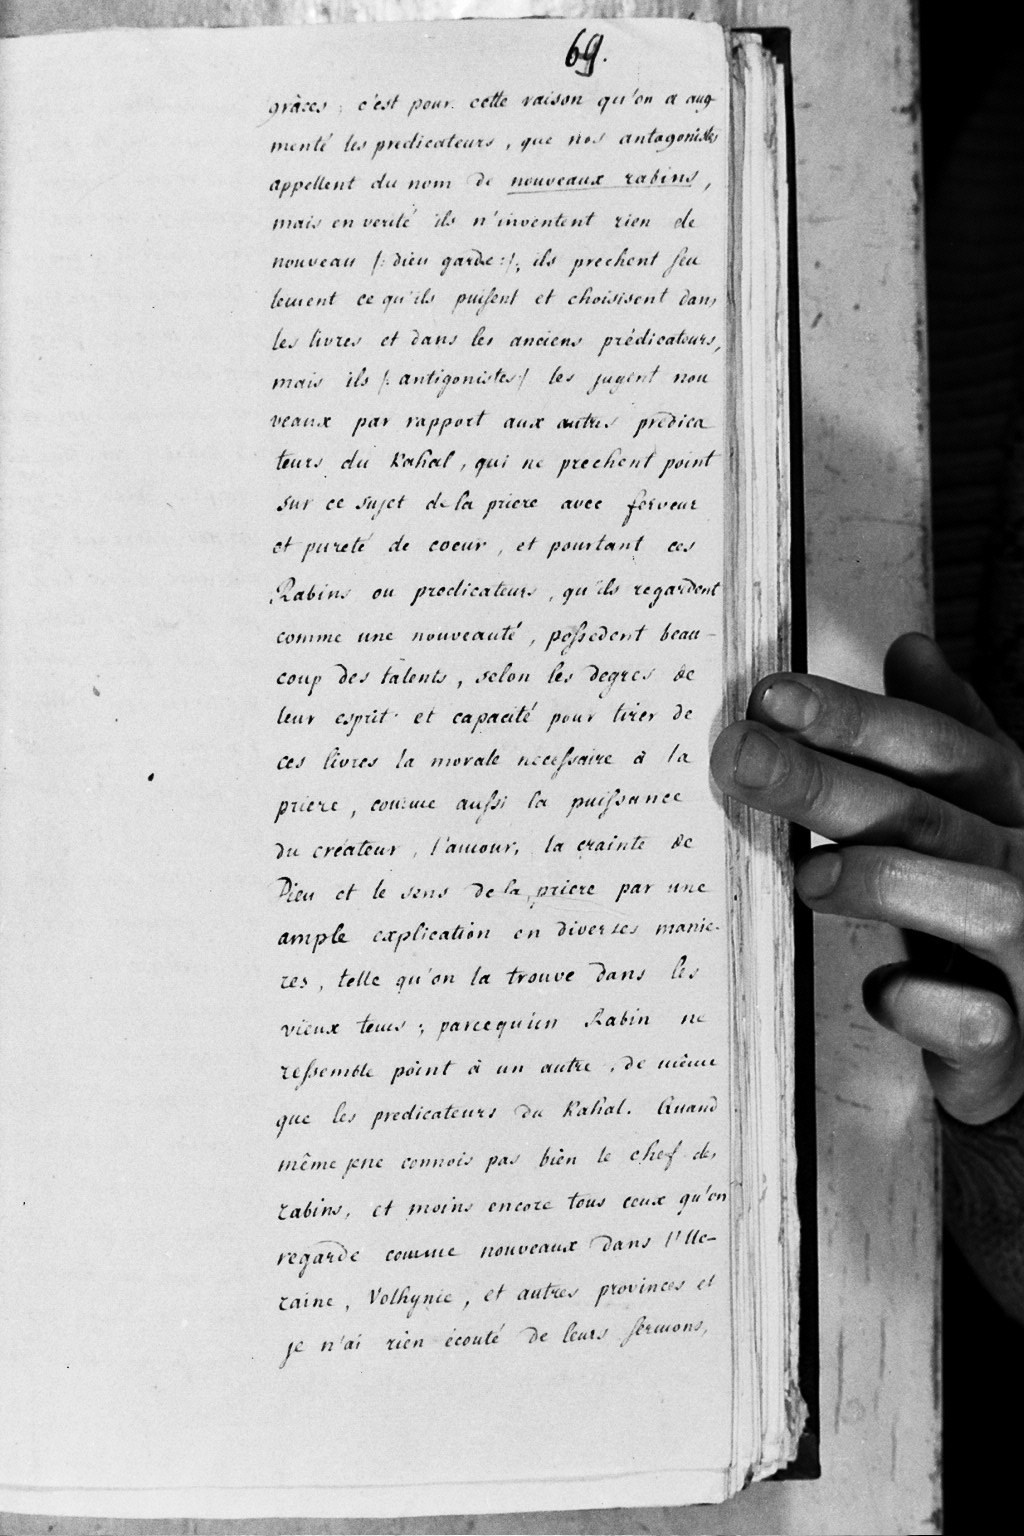 69.
grâces ; c'est pour cette raison qu'on a aug-
menté les predicateurs, que nos antagonistes
appellent du nom de nouveaux rabins,
mais en verité ils n'inventent rien de
nouveau /: dieu garde :/, ils prechent seu
lement ce qu'ils puisent et choisisent dans
les livres et dans les anciens prédicateurs,
mais ils /: antigonistes / les jugent nou
veaux par rapport aux autres predica
teurs du Kahal, qui ne prechent point
sur ce sujet de la priere avec ferveur
et pureté de coeur, et pourtant ces
Rabins ou predicateurs, qu'ils regardent
comme une nouveauté, possedent beau-
coup des talents, selon les degres de
leur esprit et capacité pour tirer de
ces livres la morale necessaire à la
priere, comme aussi la puissance
du créateur, l'amour, la crainte de
Dieu et le sens de la priere par une
ample explication en diverses manie-
res, telle qu'on la trouve dans les
vieux tems ; parcequ'un Rabin ne
ressemble point à un autre, de même
que les predicateurs du Kahal. Quand
même je ne connois pas bien le chef des
rabins, et moins encore tous ceux qu'on
regarde comme nouveaux dans l'Uc-
raine, Volhynie, et autres provinces et
je n'ai rien écouté de leurs sermons,